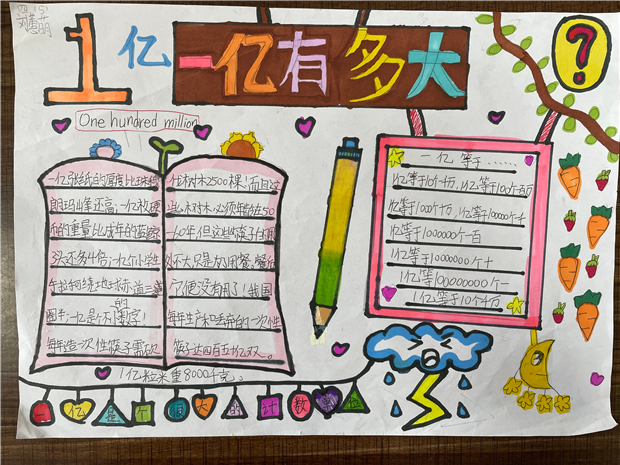 1亿
一亿有多大
?
One hundred million
一亿张纸的厚度比珠穆
朗玛峰还高,一亿枚硬
币的重量比成年的蓝鲸
3头还多4倍,一亿个小学生
手拉手可绕地球赤道三
图卡,一亿是个不的数字!
每年造一次性筷子需砍
伐树木2500棵!而且这
些树木必须年龄在50
—60年,但这些筷子作用
不大,只是为了用餐,餐后
它便没有用了!我国
每年生产和丢弃的一次性
筷子达四百五十亿双。
1亿粒米重8000千克。
一亿等于……
1亿等于10个千万,1亿等于100个百万
1亿等于1000个十万,1亿等于10000个
1亿等于1000000个一百
1亿等于10000000个十
1亿等于100000000个一
1亿等于10个千万
一亿是个很大的计数单位